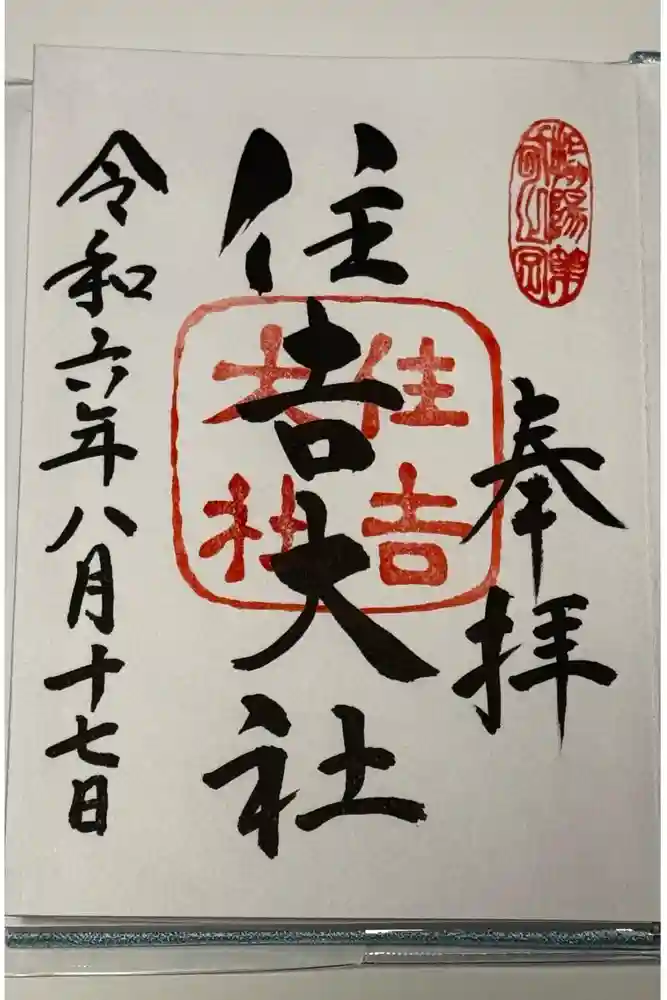 奉拝
住吉大社
住吉大社
令和六年八月十七日